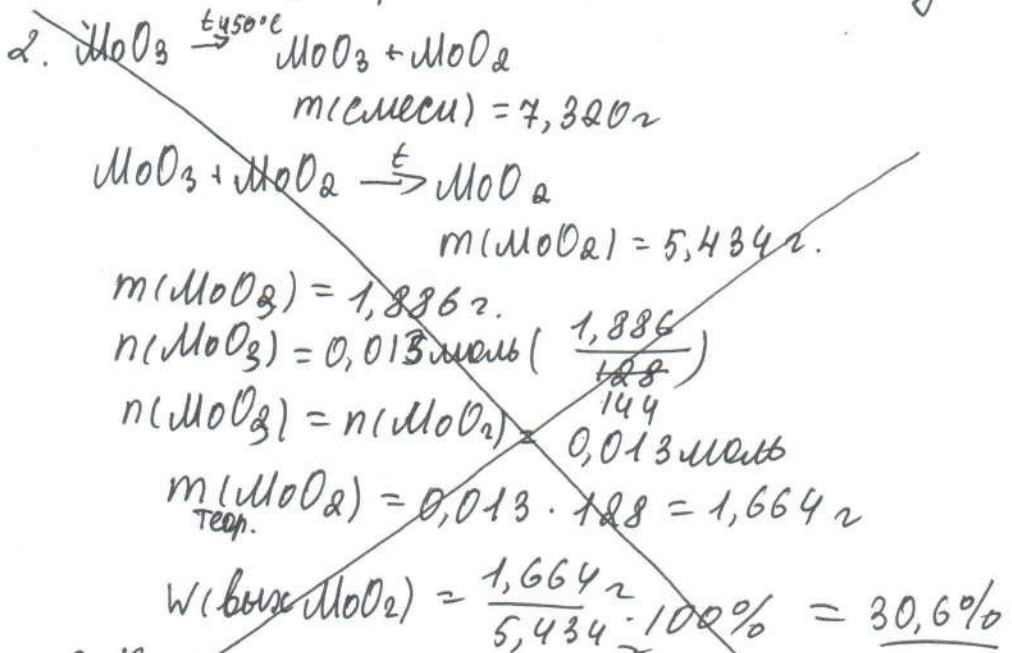 2. MoO3 t450°C→ MoO3 + MoO2
m(смеси) = 7,320г
MoO3 + MoO2 t→ MoO2
m(MoO2) = 5,434г.
m(MoO3) = 1,886г.
n(MoO3) = 0,013моль( 1,886 / 128 144 )
n(MoO3) = n(MoO2) = 0,013моль
m(MoO2) = 0,013 · 128 = 1,664г
теор.
W(вых MoO2) = 1,664г / 5,434г · 100% = 30,6%